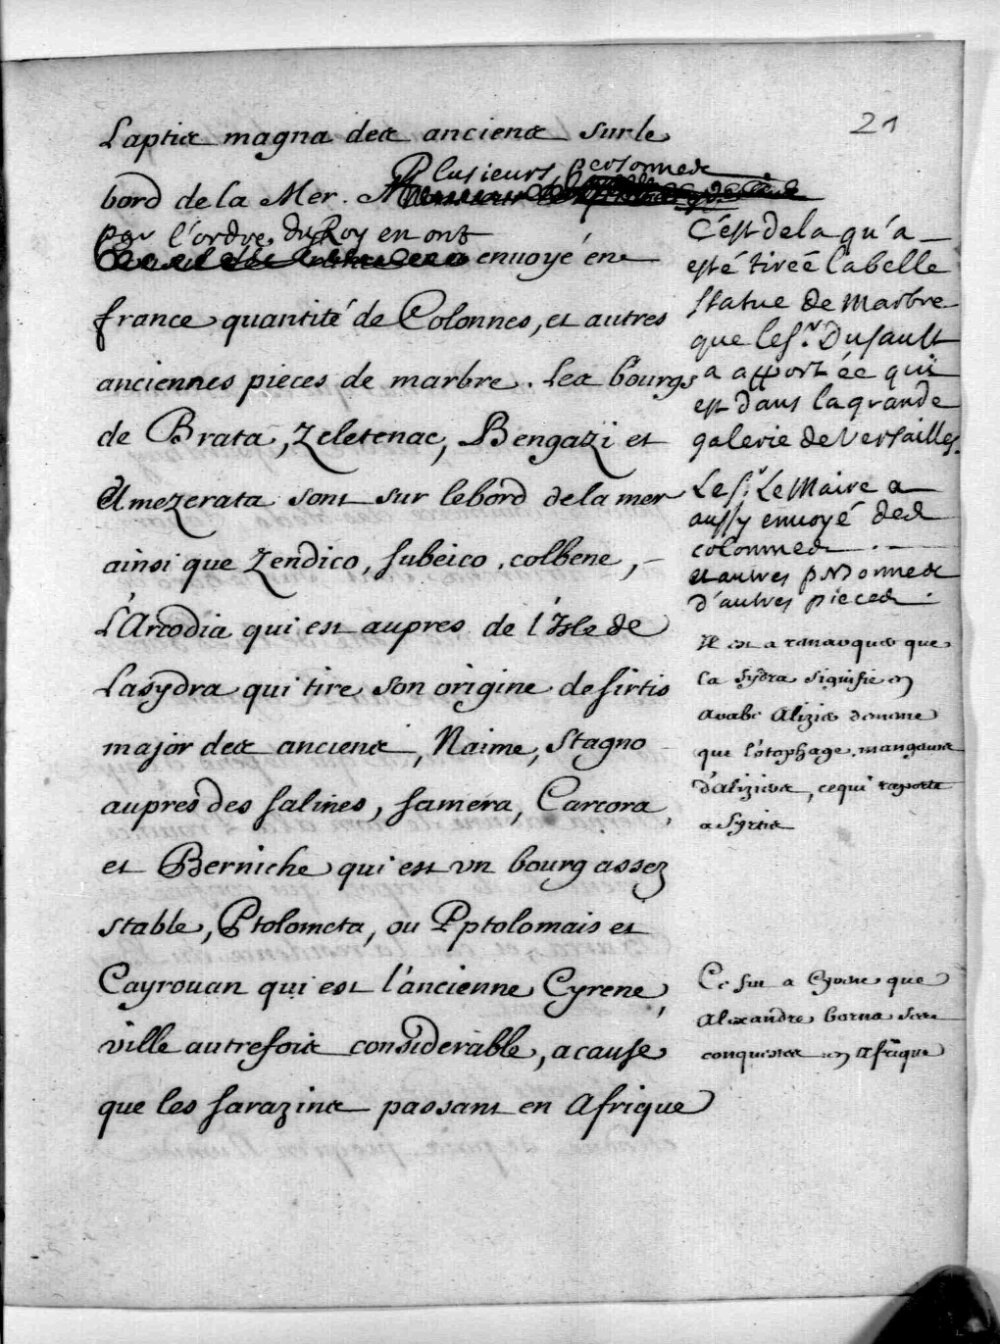 21
Laptis magna des anciens sur le
bord de la Mer. Plusieurs personnes
par l'ordre du Roy en ont
envoyé en
france quantité de Colonnes, et autres
anciennes pieces de marbre. Les bourgs
de Brata, Zeletenac, Bengazi et
Amezerata sont sur le bord de la mer
ainsi que Zendico, Subeico, colbene,
L'Arcodia qui est aupres de l'Isle de
Lasydra qui tire son origine de sirtis
major des anciens, Naime, Stagno
aupres des salines, Samera, Carcora,
et Berniche qui est un bourg assez
stable, Ptolometa, ou Pptolomais et
Cayrouan qui est l'ancienne Cyrene,
ville autrefois considerable, a cause
que les sarazins passant en Afrique
C'est de la qu'a
esté tireé la belle
statue de Marbre
que le Sr. Dusault
a apportée qui
est dans la grande
galerie de Versailles.
Le Sr. Le Maire a
aussy envoyé des
colonnes
et autres personnes
d'autres pieces.
Il est a remarquer que
la Sydra signifie en
arabe Alizier
que l'otophage, mangeurs
d'aliziers, ce qui raporte
a Syrtis
Ce fut a Cyrene que
Alexandre borna ses
conquestes en Afrique